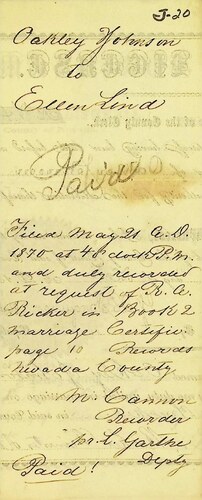 J-20
Oakley Johnson
to
Ellen Lind
Paid
Filed May 21 A.D.
1870 at 4 o'clock P.M.
and duly recorded
at request of R. A.
Ricker in Book 2
marriage Certific.
page 10 Records
Nevada County
M. Cannon
Recorder
pr. C. Garthe
Dpty
Paid!